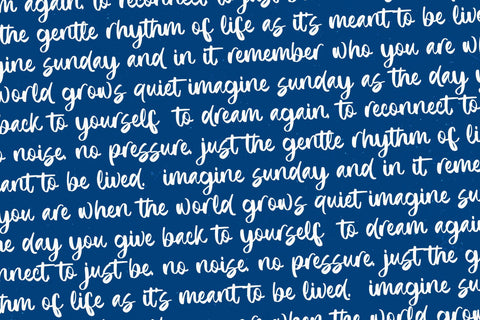 m again, to reconnect to just be, no noise
the gentle rhythm of life as it's meant to be live
gine sunday and in it remember who you are w
world grows quiet imagine sunday as the day y
back to yourself to dream again, to reconnect to
o noise, no pressure, just the gentle rhythm of li
ant to be lived. imagine sunday and in it reme
you are when the world grows quiet imagine su
he day you give back to yourself to dream again
nnect to just be, no noise, no pressure, just the g
thm of life as it's meant to be lived. imagine su
when the world grow